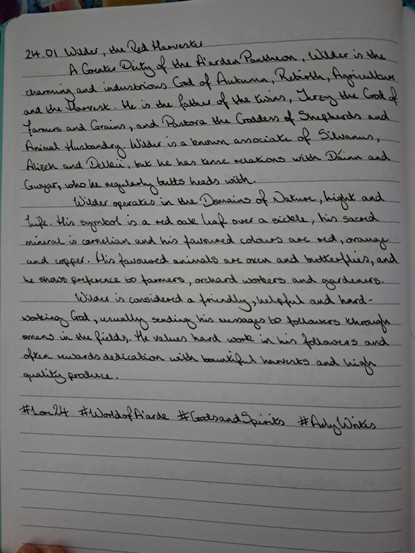 24.01 Wilder, the Red Harvester
A Greater Deity of the A'arden Pantheon, Wilder is the
charming and industrious God of Autumn, Rebirth, Agriculture
and the Harvest. He is the father of the twins, Terzy the God of
Farmers and Grains, and Pastora the Goddess of Shepherds and
Animal Husbandry. Wilder is a known associate of Silvanus,
and, but he has tense relations with Dáinn and
who he regularly butts heads with.
Wilder operates in the Domains of Nature, Light and
Life. His symbol is a red oak leaf over a sickle, his sacred
mineral is carnelian and his favoured colours are red, orange
and copper. His favoured animals are oxen and butterflies, and
he shows preference to farmers, orchard workers and gardeners.
Wilder is considered a friendly, helpful and hard-
working God, usually sending his messages to followers through
omens in the fields. He values hard work in his followers and
often rewards dedication with bountiful harvests and high
quality produce.
#Lore24 #WorldofA'arde #GodsandSpirits #AdyWrites